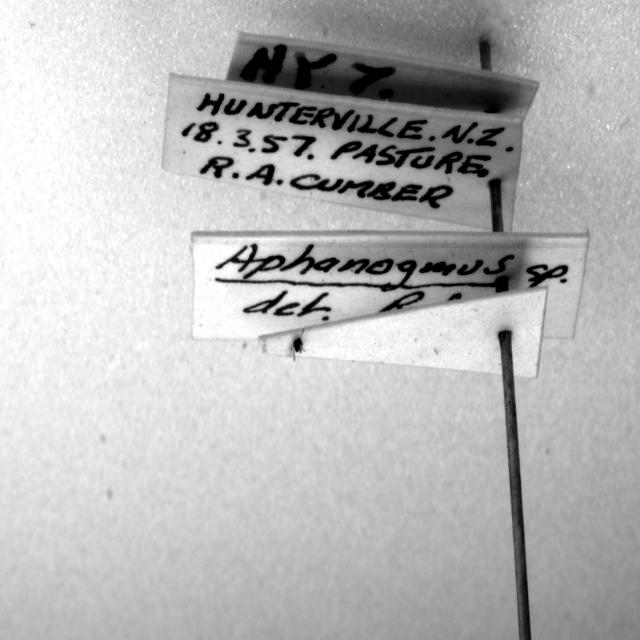 HUNTERVILLE. N.Z.
18.3.57. PASTURE.
R.A. CUMBER
Aphanogmus sp.
det.